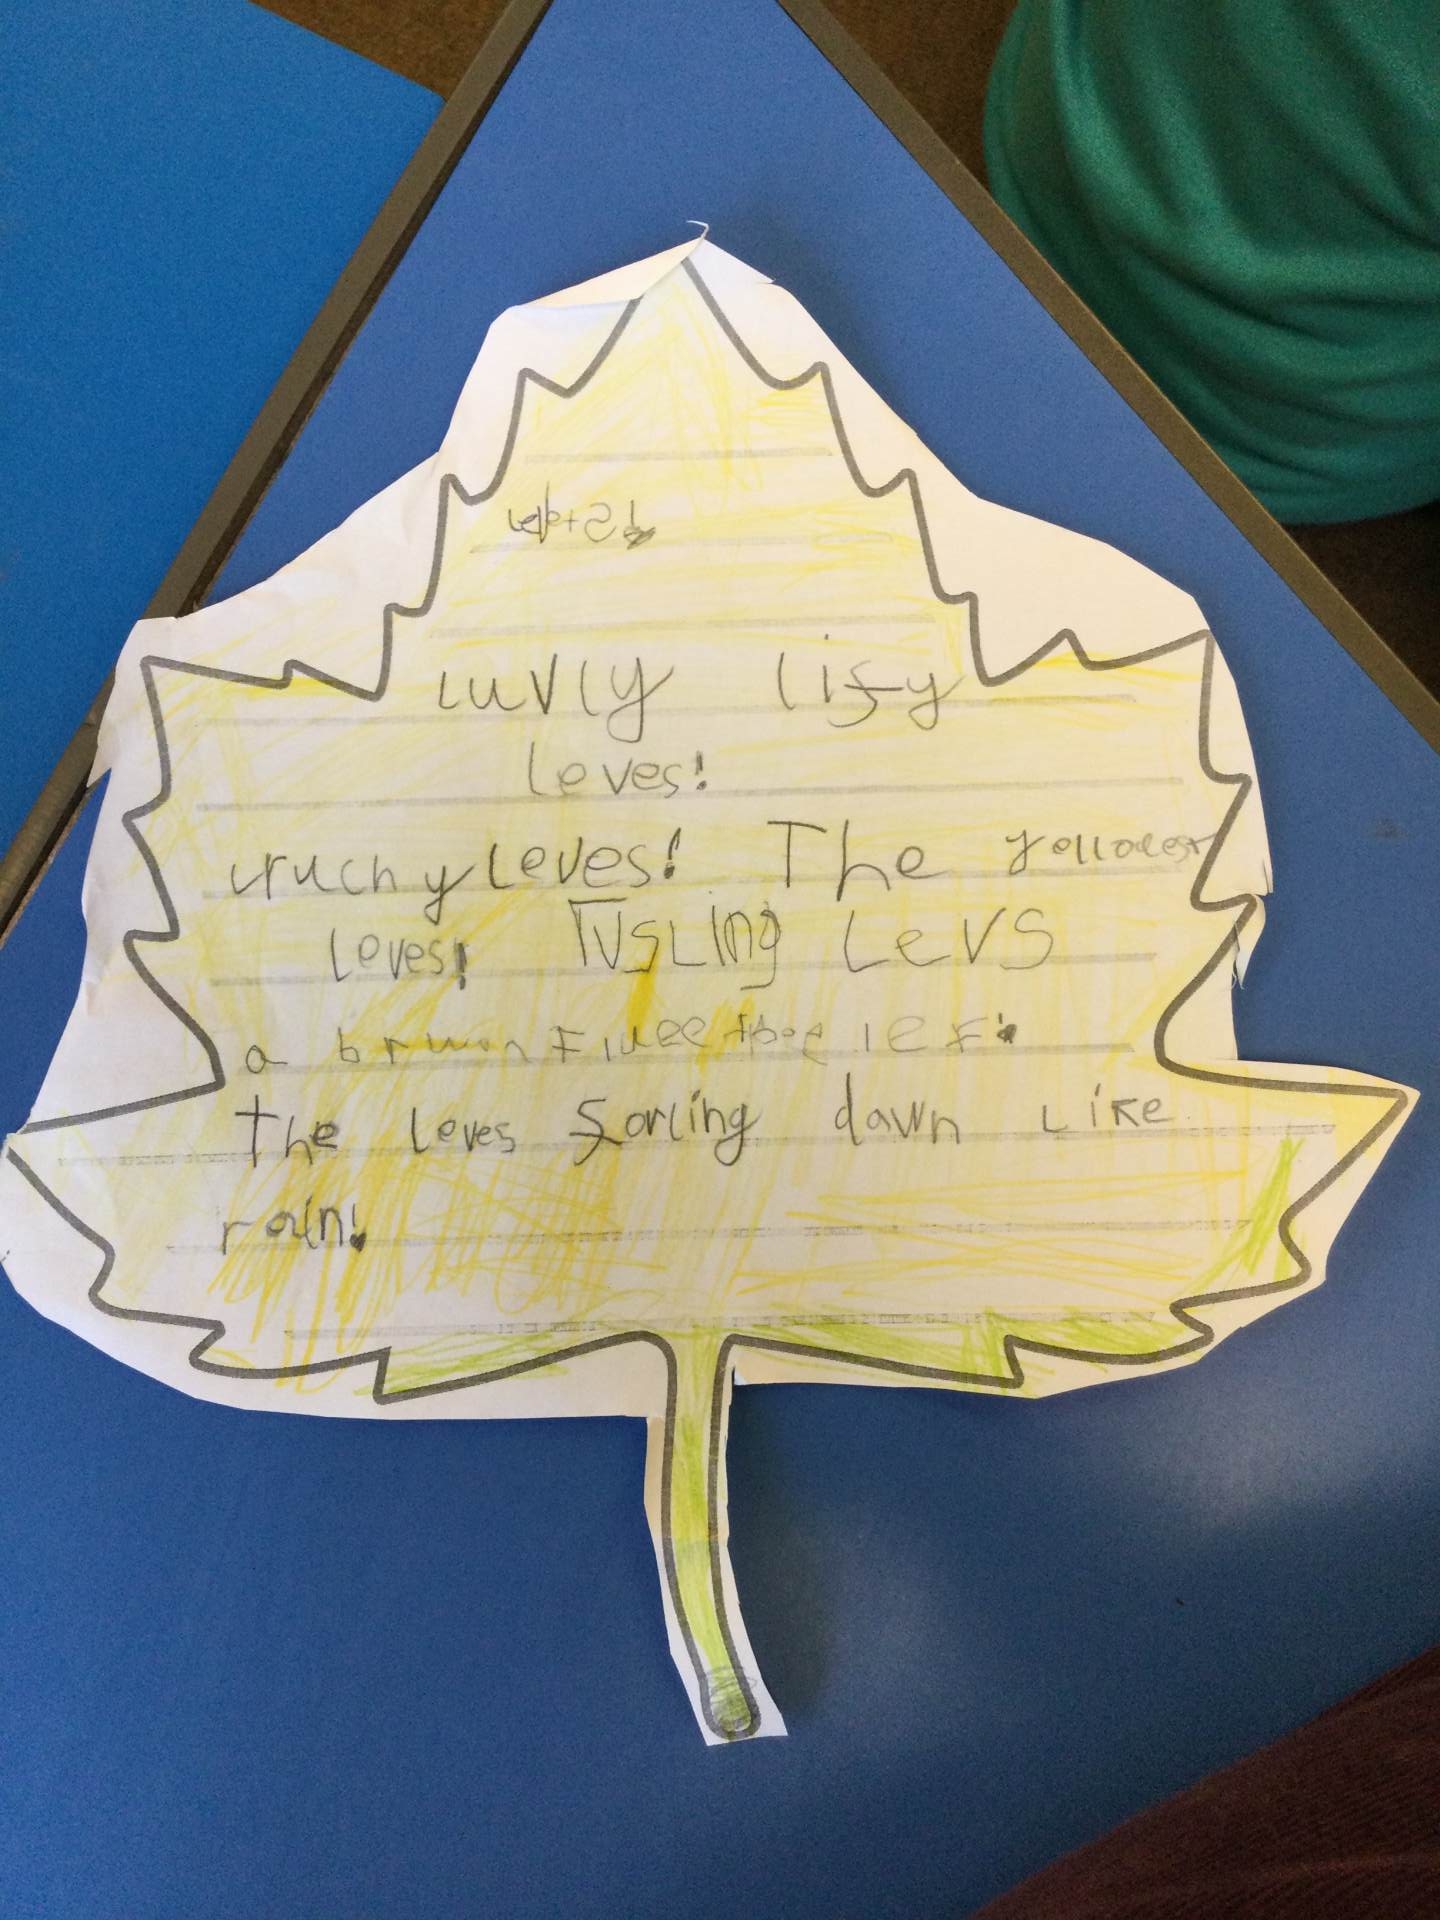 luvly lify
leves!
cruchy leves! The yellowest
leves! rusling Levs
a brwon
The leves forling dawn Like
rain!